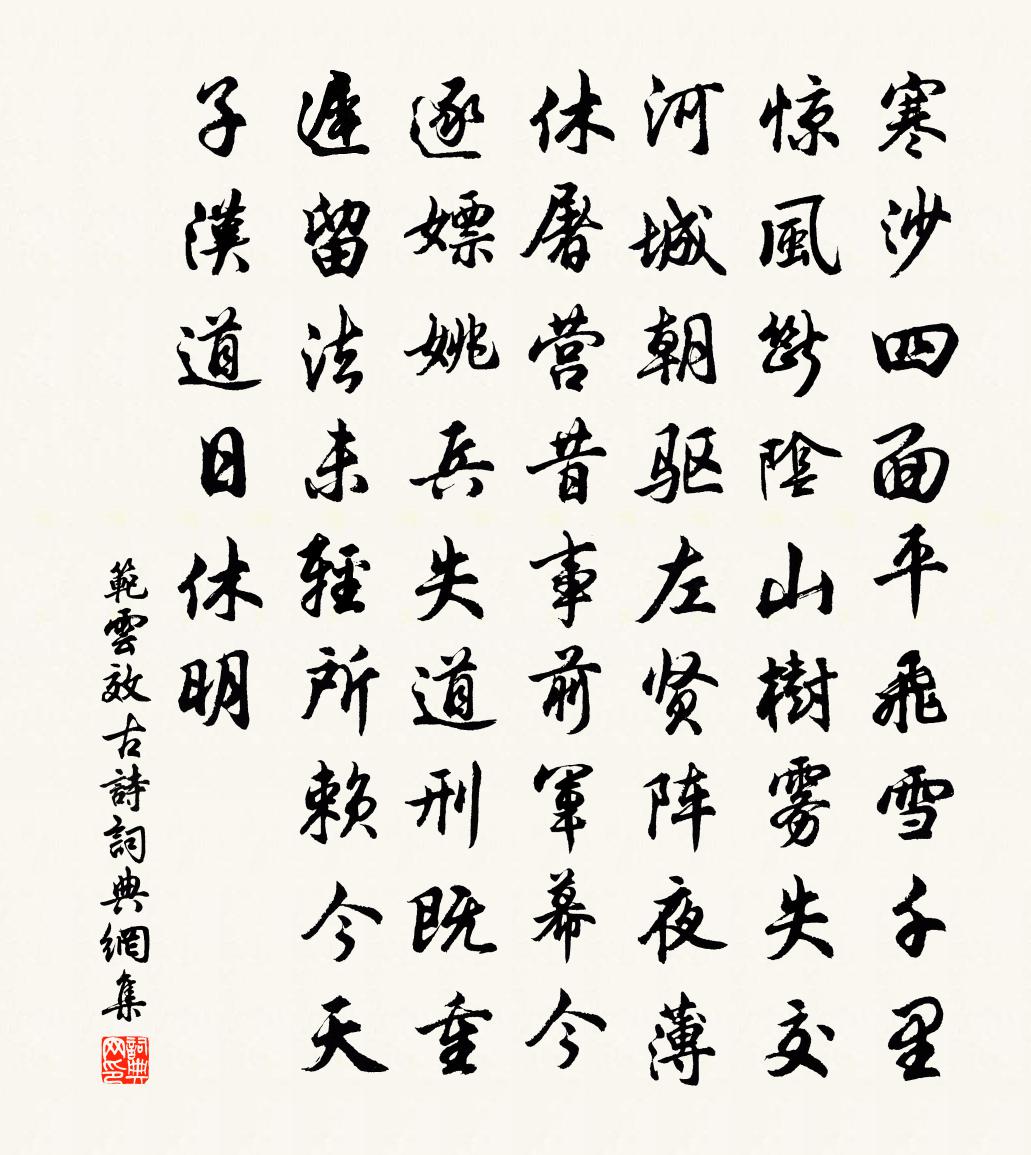 寒沙四面平飛雪千里
惊風斷陰山樹雾失交
河城朝驱左贤阵夜薄
休屠营昔事前軍幕今
逐嫖姚兵失道刑既重
遲留法未輕所赖今天
子漢道日休明
範雲效古詩詞典網集
詞典网印